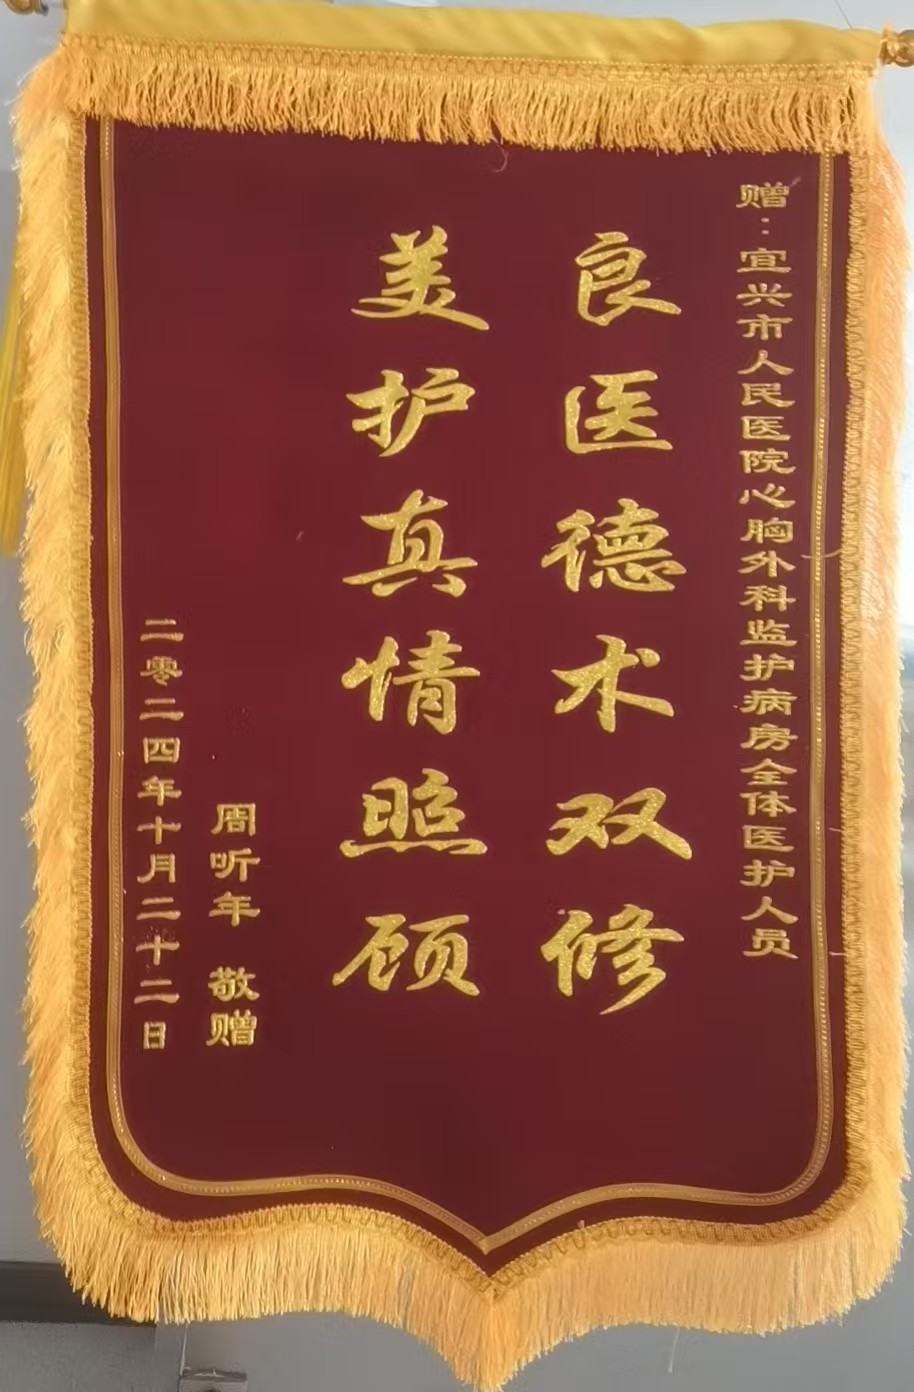 赠：宜兴市人民医院心胸外科监护病房全体医护人员
良医德术双修
美护真情照顾
周听年 敬赠
二零二四年十月二十二日